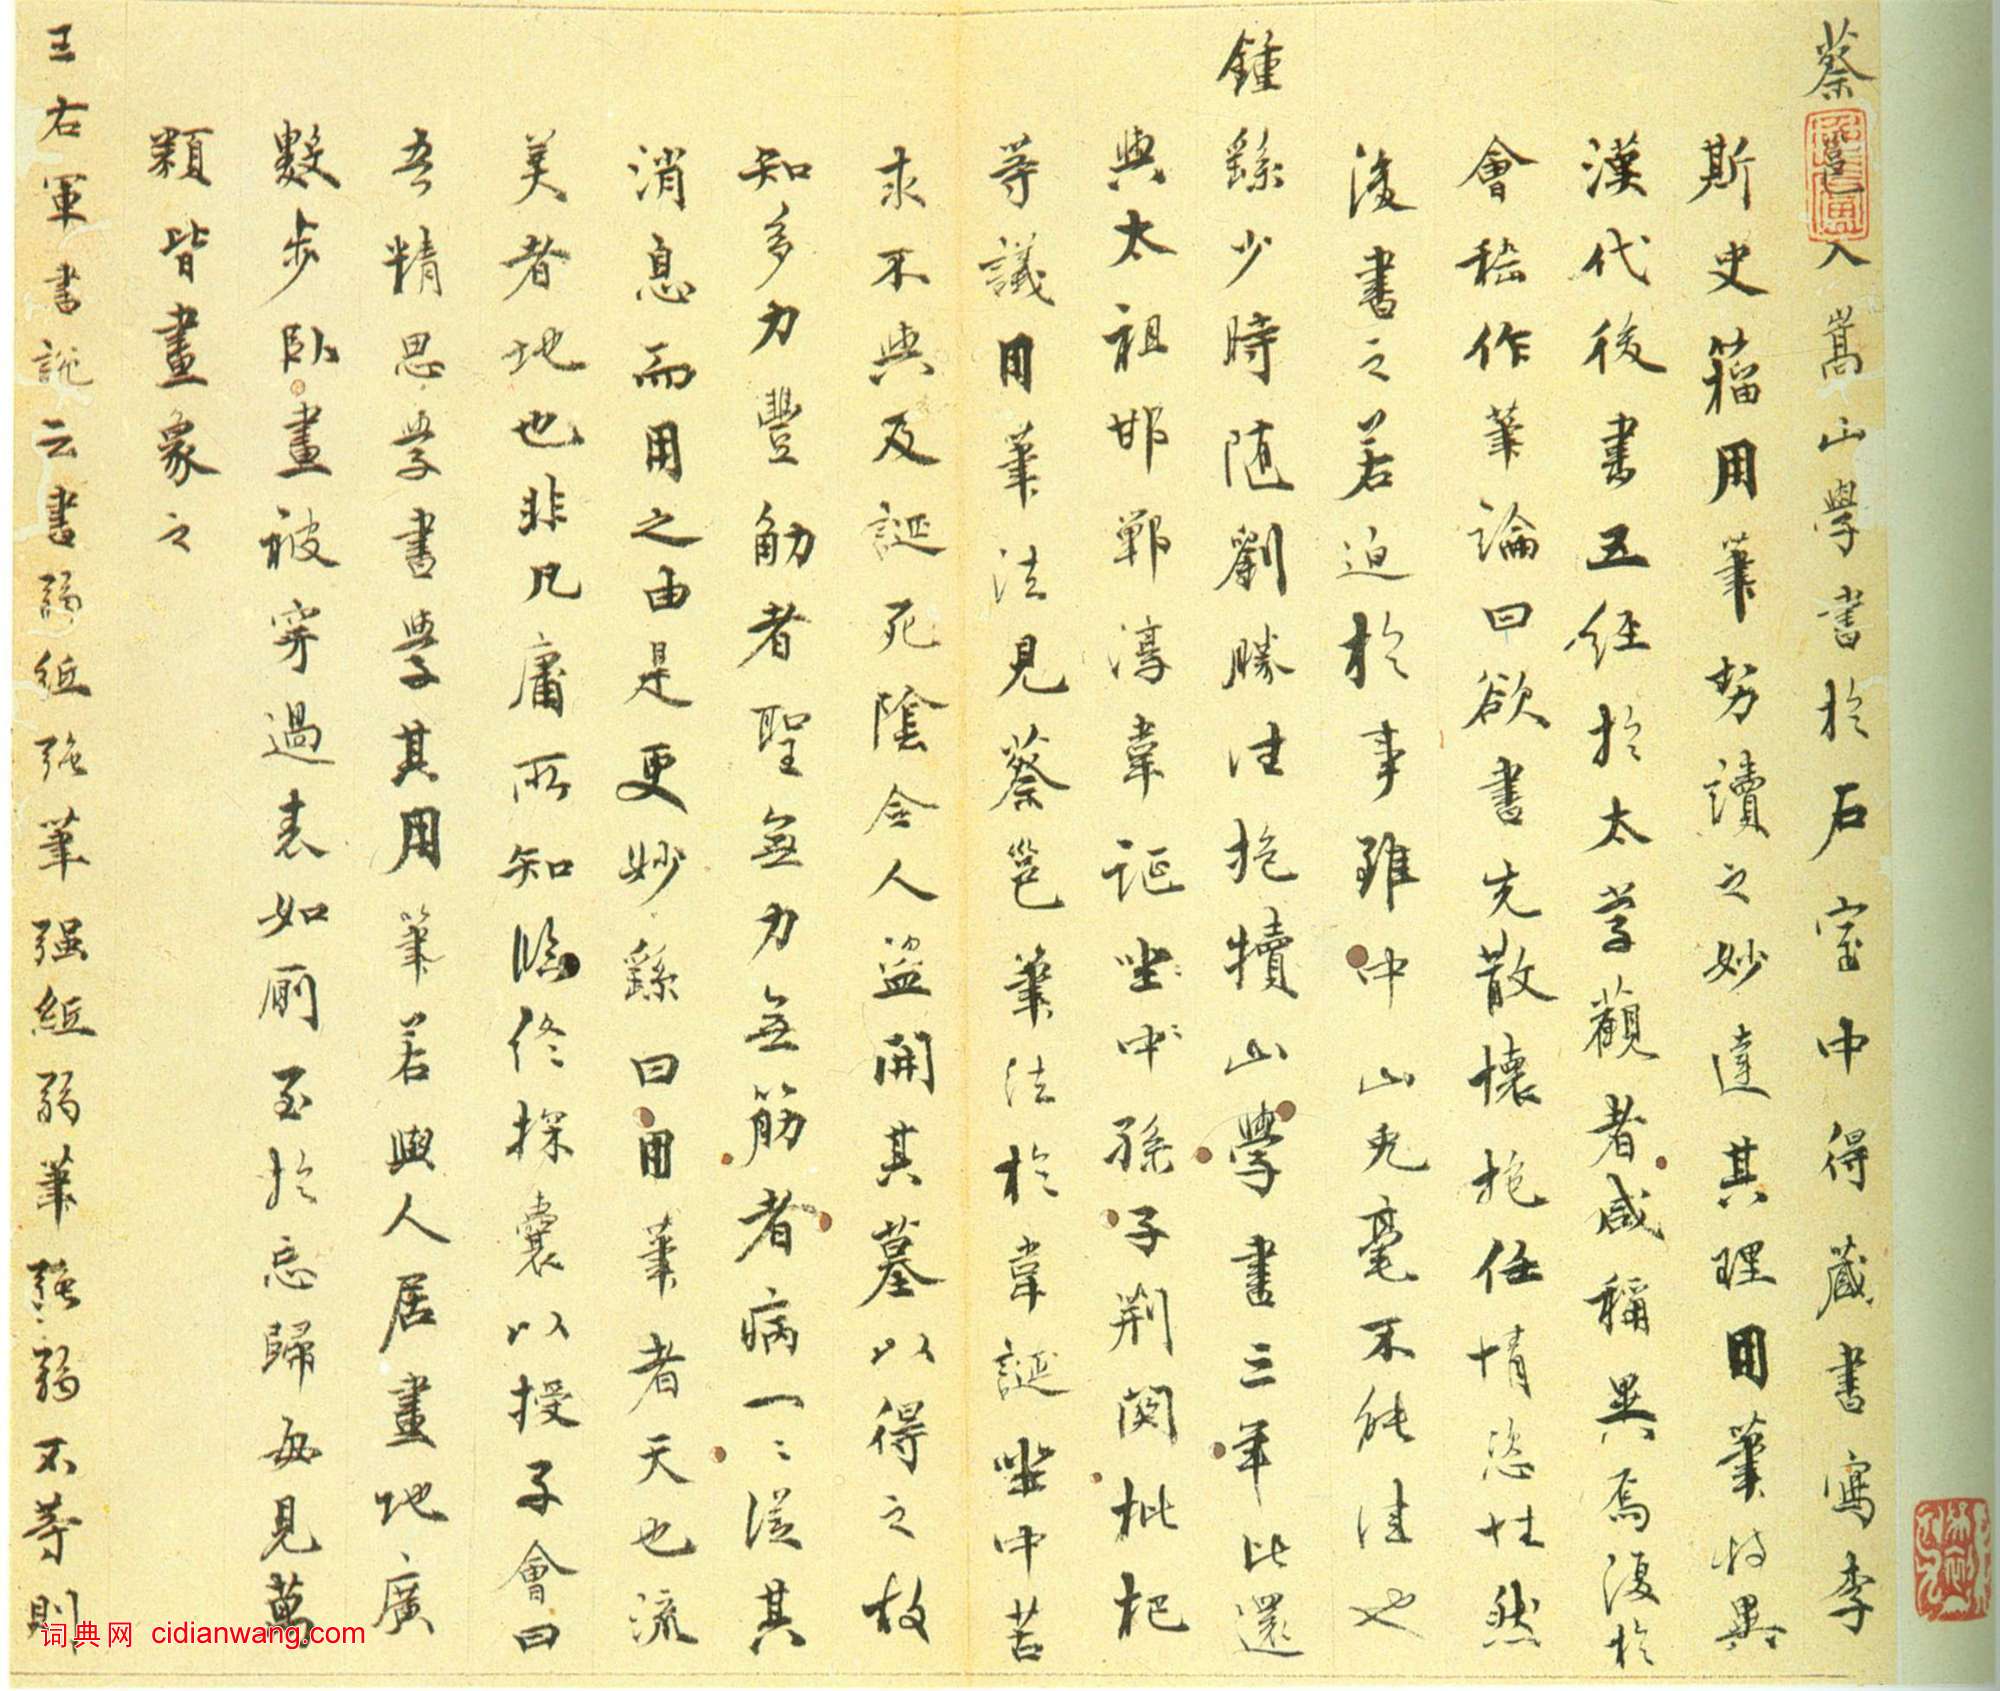 蔡邕入嵩山學書於石室中得藏書寫李
斯史籀用筆势讀之妙達其理用筆特異
漢代後書五经於太学觀者咸稱異焉復於
會嵇作筆論曰欲書先散懷抱任情恣性然
後書之若迫於事雖中山兔毫不能佳也
鍾繇少時随劉勝往抱犢山學書三年比還
與太祖邯鄲淳韋誕坐中孫子荆関枇杷
等議用筆法見蔡邕筆法於韋誕坐中苦
求不與及誕死陰令人盗開其墓以得之故
知多力豐觔者聖無力無筋者病一ミ從其
消息而用之由是更妙繇曰用筆者天也流
美者地也非凡庸所知臨终探囊以授子會曰
吾精思学書學其用筆若與人居畫地廣
數步臥畫被穿過表如厠至於忘歸每見萬
類皆畫象之
王右軍書説云書弱紙强筆强紙弱筆强弱不等則
词典网 cidianwang.com